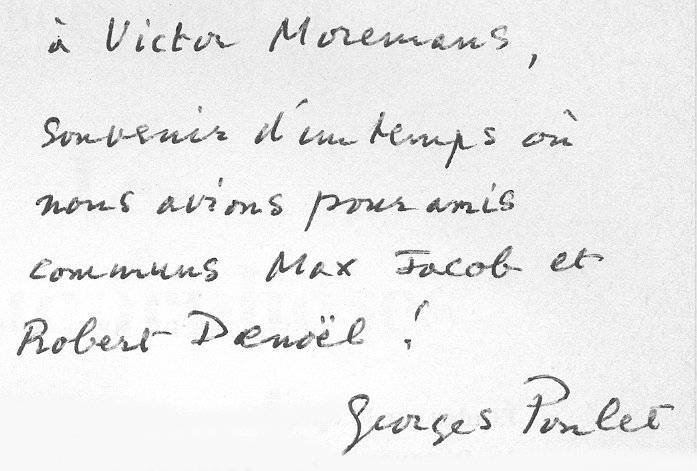 à Victor Moremans,
souvenir d'un temps où
nous avions pour amis
communs Max Jacob et
Robert Denoël !
Georges Poulet